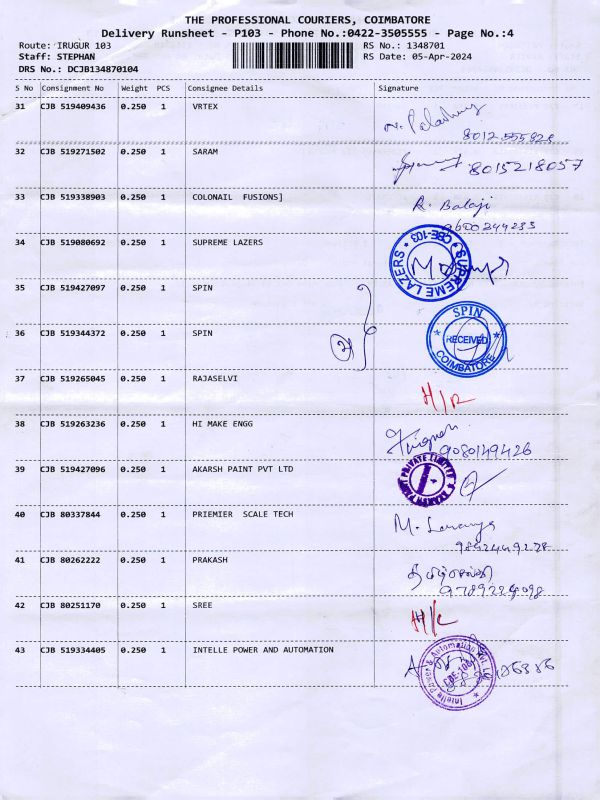 THE PROFESSIONAL COURIERS, COIMBATORE
Delivery Runsheet - P103 - Phone No.:0422-3505555 - Page No.:4
Route: IRUGUR 103 RS No.: 1348701
Staff: STEPHAN RS Date: 05-Apr-2024
DRS No.: DCJB134870104
S No Consignment No Weight PCS Consignee Details Signature
31 CJB 519409436 0.250 1 VRTEX
8012555828
32 CJB 519271502 0.250 1 SARAM
8015218057
33 CJB 519338903 0.250 1 COLONAIL FUSIONS]
R. Balaji
9600244233
34 CJB 519080692 0.250 1 SUPREME LAZERS
SUPREME LAZERS CBE-103
35 CJB 519427097 0.250 1 SPIN
36 CJB 519344372 0.250 1 SPIN
2
SPIN
RECEIVED
COIMBATORE
37 CJB 519265045 0.250 1 RAJASELVI
H/R
38 CJB 519263236 0.250 1 HI MAKE ENGG
9080149426
39 CJB 519427096 0.250 1 AKARSH PAINT PVT LTD
AKARSH PAINT PRIVATE LIMITED
40 CJB 80337844 0.250 1 PRIEMIER SCALE TECH
M. Lavanya
9842449278
41 CJB 80262222 0.250 1 PRAKASH
தமிழ்செல்வி
42 CJB 80251170 0.250 1 SREE
43 CJB 519334405 0.250 1 INTELLE POWER AND AUTOMATION
Intelle Power & Automation Pvt.